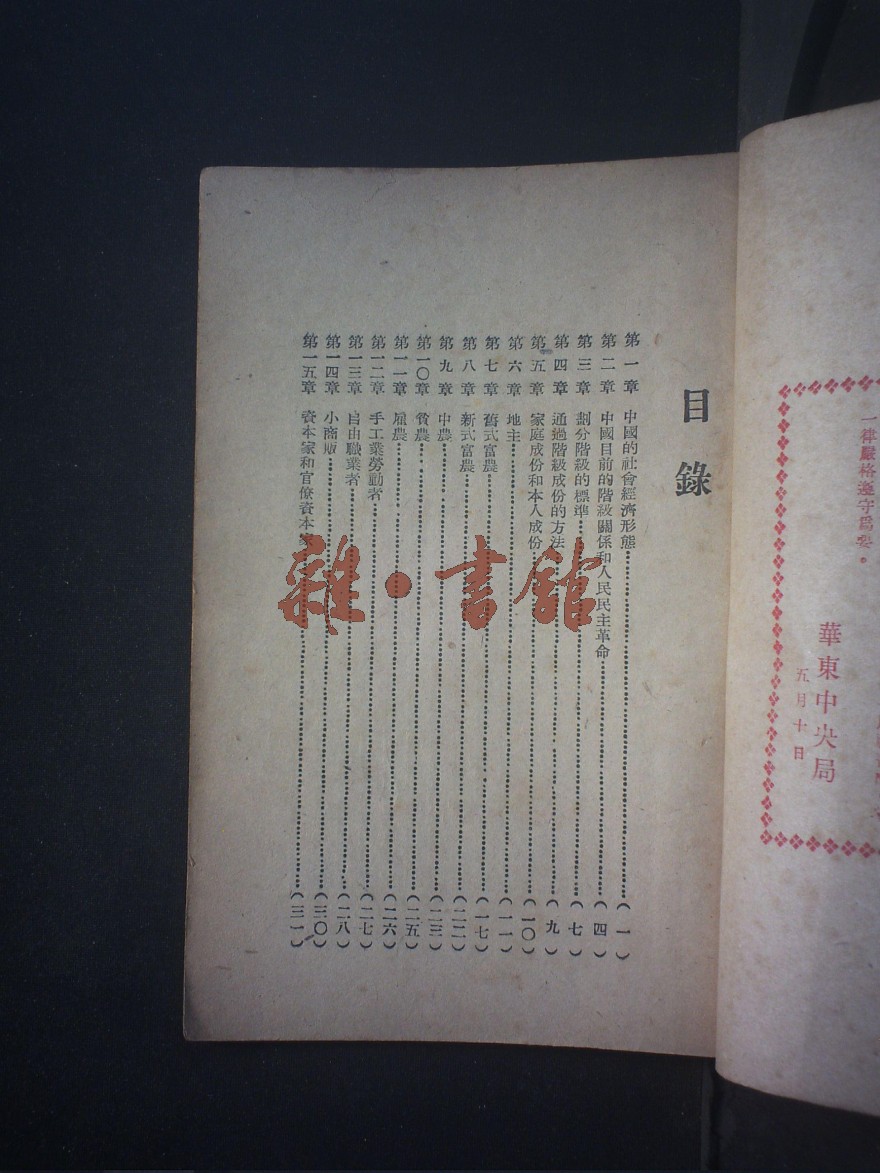 一律嚴格遵守爲要。
華東中央局
五月十日
目錄
第一章 中國的社會經濟形態…………（一）
第二章 中國目前的階級關係和人民民主革命…………（四）
第三章 劃分階級的標準…………（七）
第四章 通過階級成份的方法…………（九）
第五章 家庭成份和本人成份…………（一〇）
第六章 地主…………（一一）
第七章 舊式富農…………（一七）
第八章 新式富農…………（二二）
第九章 中農…………（二三）
第一〇章 貧農…………（二五）
第一一章 雇農…………（二六）
第一二章 手工業勞動者…………（二七）
第一三章 自由職業者…………（二八）
第一四章 小商販…………（三〇）
第一五章 資本家和官僚資本家…………（三一）
雜·書館